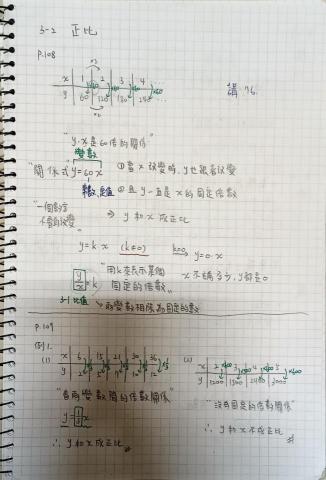 3-2 正比
P.108
x 1 2 3 4 ...
y 60 120 180 240 ...
×60 ×60 ×60 ×60
講 76
"y.x是60倍的關係"
變數
"關係式" y=60x ①當x改變時,y也跟著改變
②且y一直是x的固定倍數
"一個數字
不會再改變"
⇒ y和x成正比
y=k.x (k≠0) k=0 y=0.x
"用k來表示某個
固定的倍數" x不論多少,y都是0
y/x=k
3-1 比值 兩變數相除為固定的數
P.109
例1.
(1) x 6 15 21 30 36
(2) x 2 3 4 5
y 1200 1800 2400 3000
"看兩變數間的倍數關係"
"沒有固定的倍數關係"
y=1/3x
∴ y和x成正比 #
∴ y和x不成正比 #